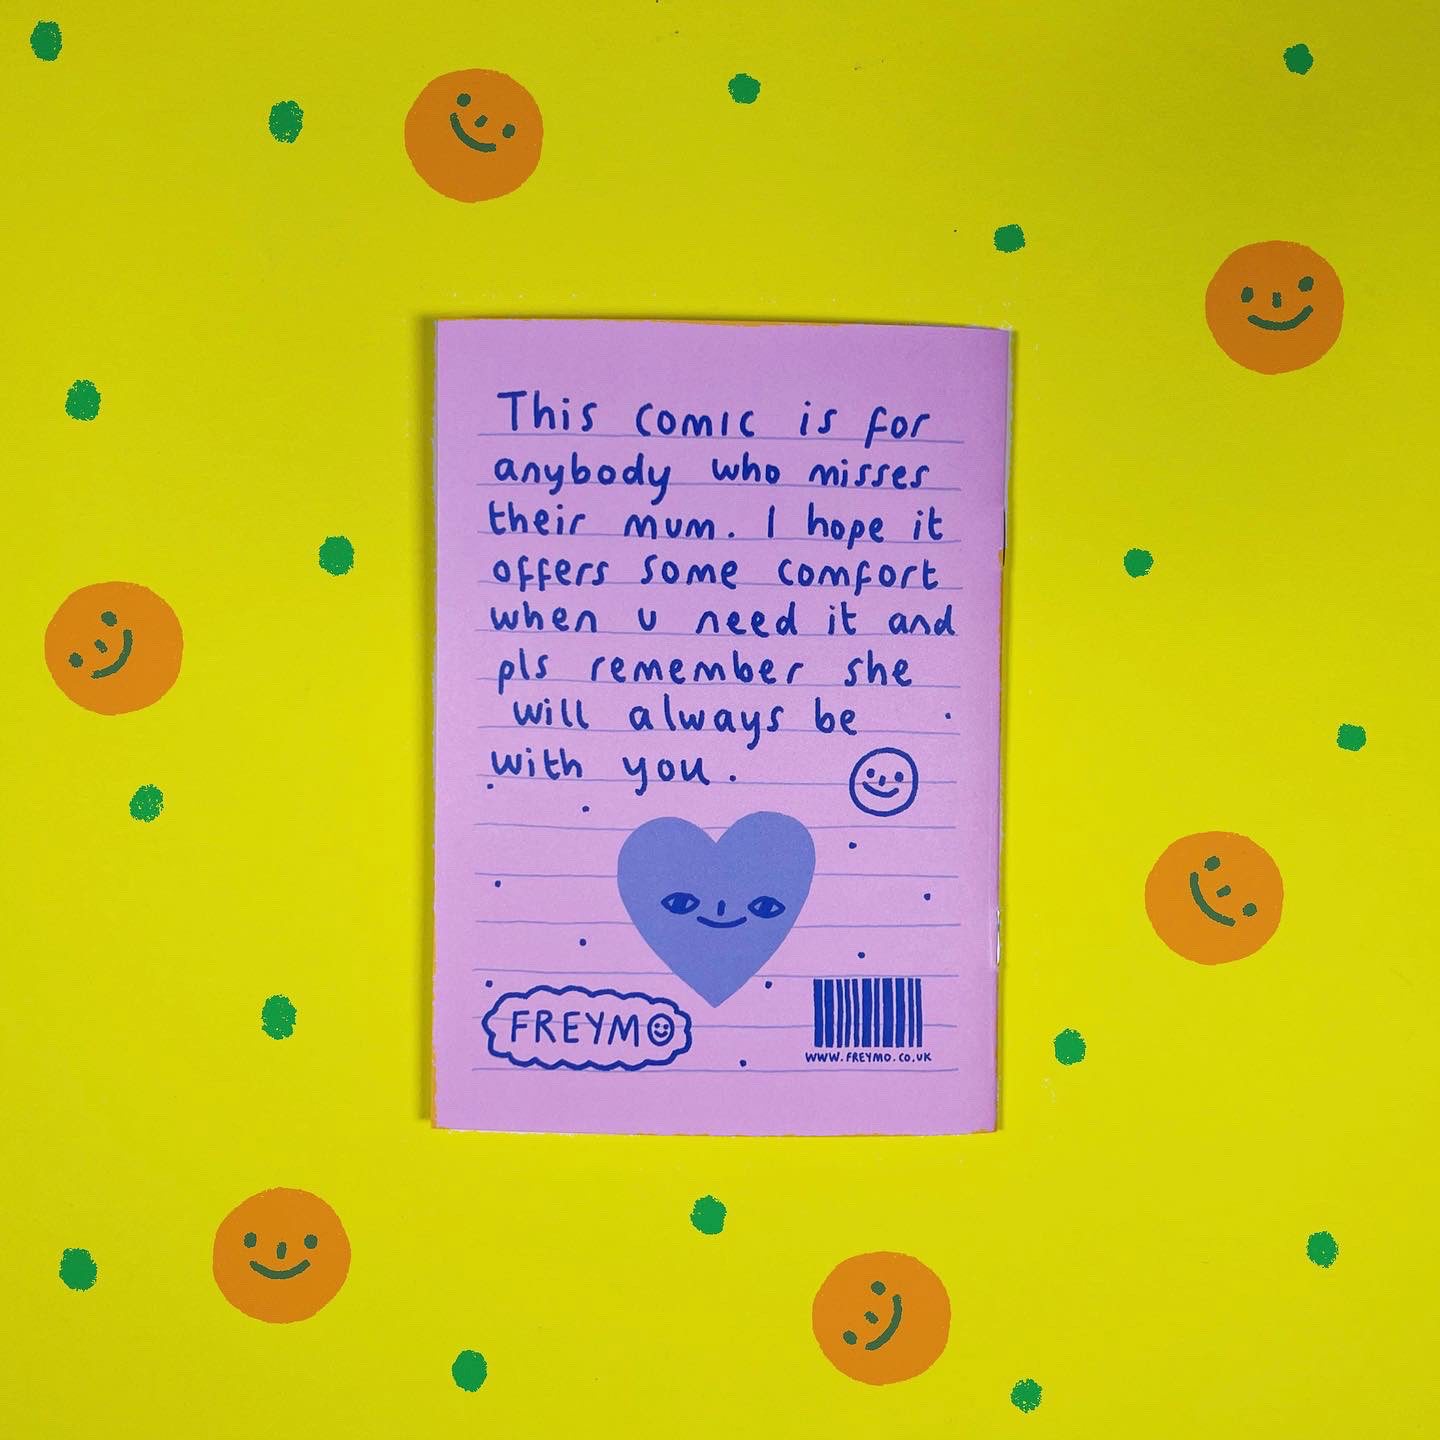 This comic is for
anybody who misses
their mum. I hope it
offers some comfort
when u need it and
pls remember she
will always be
with you.
FREYMO
WWW.FREYMO.CO.UK